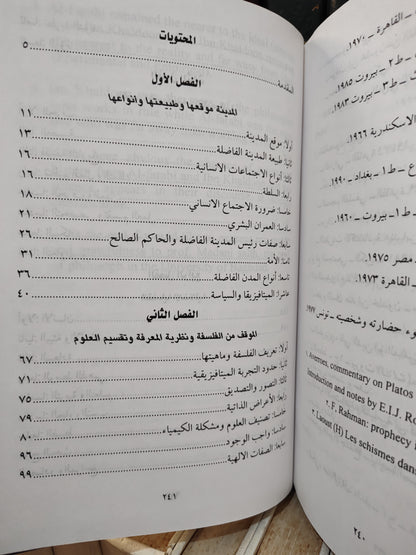 المحتويات
المقدمة ٥
الفصل الأول
المدينة موقعها وطبيعتها وانواعها
أولا: موقع المدينة ١١
ثانيا: طبيعة المدينة الفاضلة ١٣
ثالثا: أنواع الاجتماعات الانسانية ١٦
رابعا: السلطة ١٦
خامسا: ضرورة الاجتماع الانساني ١٨
سادسا: العمران البشري ٢١
سابعا: صفات رئيس المدينة الفاضلة والحاكم الصالح ٢٦
ثامنا: الأمة ٣١
تاسعا: أنواع المدن الفاضلة ٣٦
عاشرا: الميتافيزيقا والسياسة ٤٠
الفصل الثاني
الموقف من الفلسفة ونظرية المعرفة وتقسيم العلوم
أولا: تعريف الفلسفة وماهيتها ٦٧
ثانيا: حدود التجربة الميتافيزيقية ٧١
ثالثا: التصور والتصديق ٧٥
رابعا: الأعراض الذاتية ٧٩
خامسا: تصنيف العلوم ومشكلة الكيمياء ٨٠
سادسا: واجب الوجود ٩٦
سابعا: الصفات الالهية ٩٩
٢٤١
القاهرة ـ ١٩٧٠.
ـ ط٢ ـ بيروت ١٩٨٥
ـ ط٣ ـ بيروت ١٩٨٣
الاسكندرية ١٩٦٦.
ع ـ ط١ ـ بغداد ـ ١٩٩٠.
ـ ط١ ـ بيروت ـ ١٩٦٠.
مصر ١٩٧٥.
القاهرة ١٩٧٣.
وء حضارته وشخصيه ـ تونس ١٩٧٧
1. Averroes, commentary on Platos
introduction and notes by E.I.J. Ro
2. F. Rahman: prophecy i
Laoust (H) Les schismes dans
٢٤٠